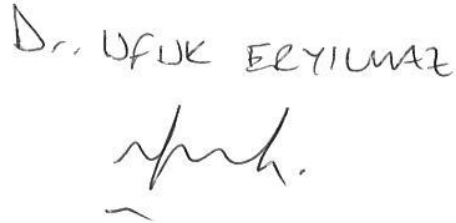 Dr. UFUK ERYILMAZ